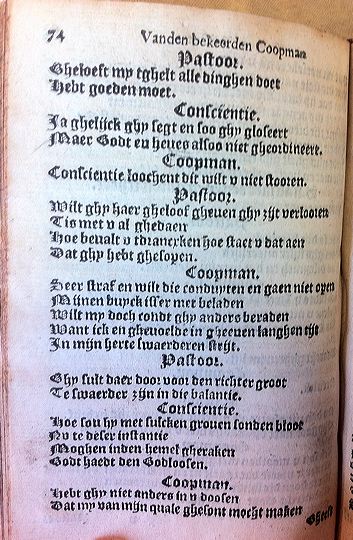 74 Vanden bekeerden Coopman
Pastoor.
Gheloeft my tghelt alle dinghen doet
Hebt goeden moet.
Conscientie.
Ja ghelijck ghy segt en soo ghy gloseert
Maer Godt en heues alsoo niet gheordineert.
Coopman.
Conscientie loochent dit wilt v niet stooren.
Pastoor.
Wilt ghy haer gheloof gheuen ghy zijt verlooren
Tis met v al ghedaen
Hoe beualt v tdrancxken hoe staet v dat aen
Dat ghy hebt ghesopen.
Coopman.
Seer straf en wilt die conduyten en gaen niet open
Mijnen buyck isser met beladen
Wilt my doch condt ghy anders beraden
Want ick en gheuoelde in gheenen langhen tijt
In mijn herte swaerderen strijt.
Pastoor.
Ghy sult daer door voor den richter groot
Te swaerder zijn in die balantie.
Conscientie.
Hoe sou hy met sulcken grouen sonden bloot
Nv te deser instantie
Moghen inden hemel gheraken
Godt haedt den Godloosen.
Coopman.
Hebt ghy niet anders in v doosen
Dat my van mijn quale ghesont mocht maken